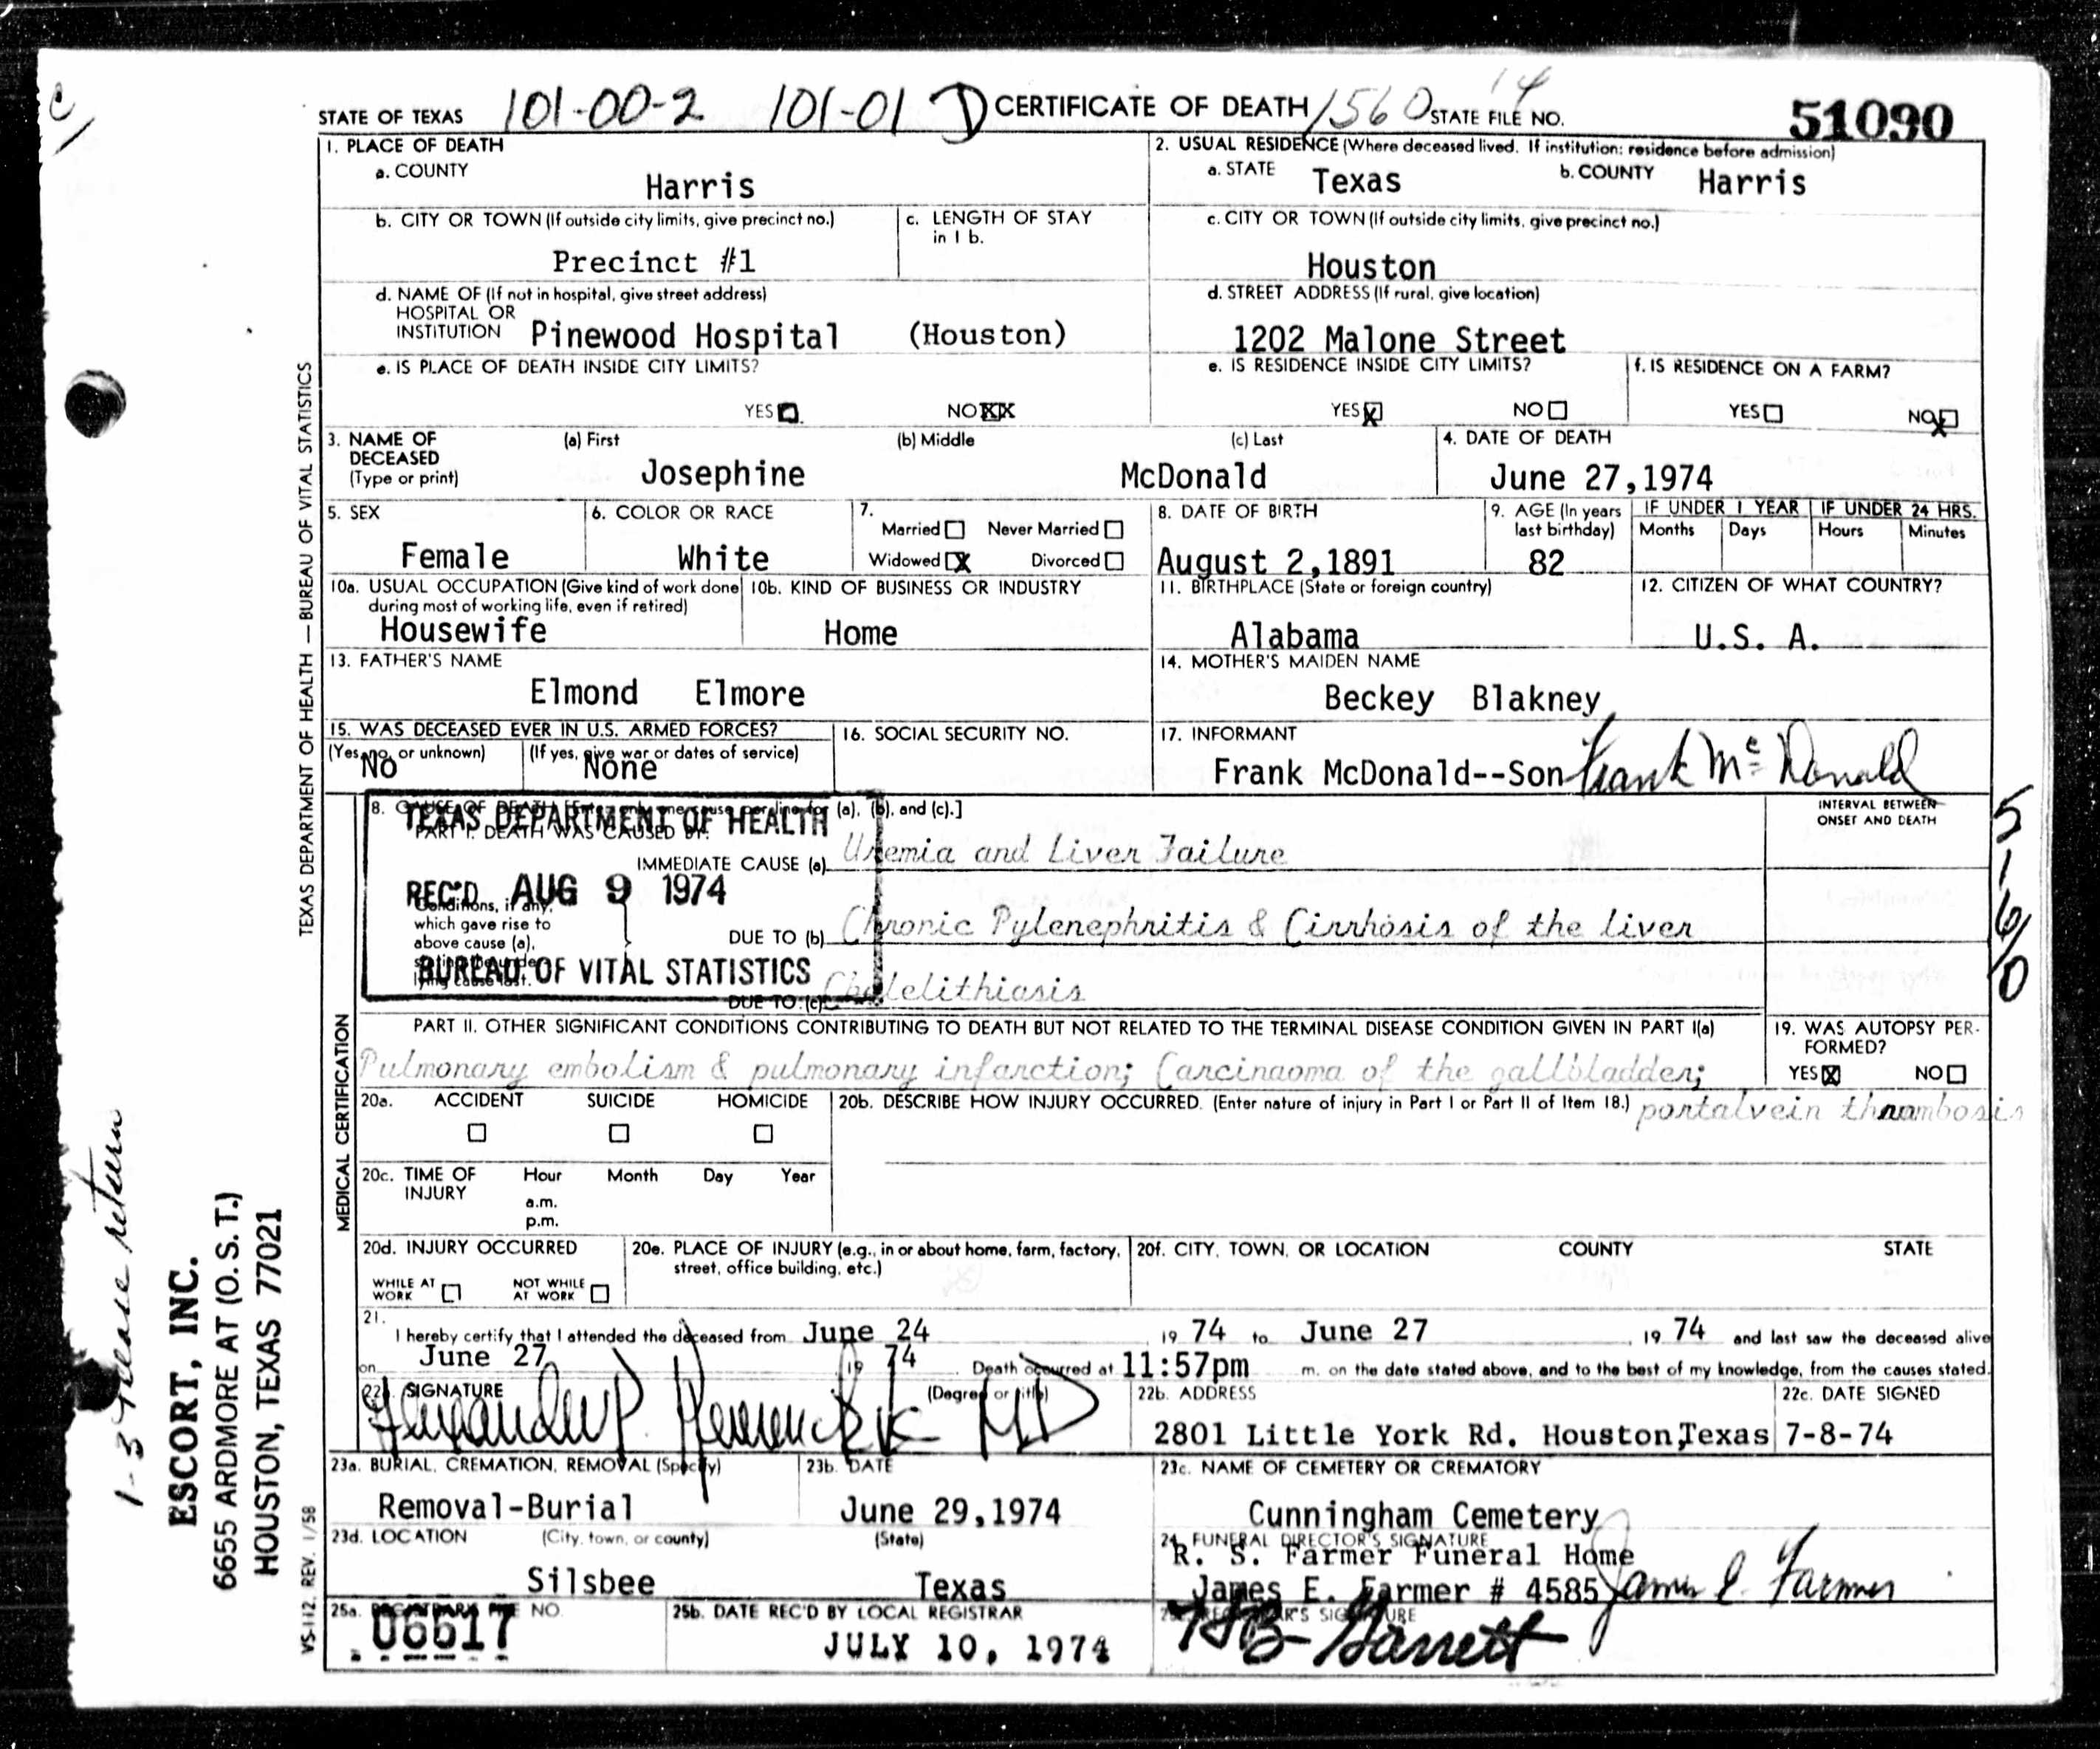 STATE OF TEXAS 101-00-2 101-01 D CERTIFICATE OF DEATH 1560 14 STATE FILE NO. 51090
1. PLACE OF DEATH
a. COUNTY
Harris
2. USUAL RESIDENCE (Where deceased lived. If institution: residence before admission)
a. STATE Texas b. COUNTY Harris
b. CITY OR TOWN (If outside city limits, give precinct no.)
Precinct #1
c. LENGTH OF STAY
in 1 b.
c. CITY OR TOWN (If outside city limits, give precinct no.)
Houston
d. NAME OF (If not in hospital, give street address)
HOSPITAL OR
INSTITUTION Pinewood Hospital (Houston)
d. STREET ADDRESS (If rural, give location)
1202 Malone Street
e. IS PLACE OF DEATH INSIDE CITY LIMITS?
YES NO XX
e. IS RESIDENCE INSIDE CITY LIMITS?
YES X NO
f. IS RESIDENCE ON A FARM?
YES NO X
3. NAME OF
DECEASED
(Type or print)
(a) First (b) Middle (c) Last
Josephine McDonald
4. DATE OF DEATH
June 27,1974
5. SEX
Female
6. COLOR OR RACE
White
7.
Married Never Married
Widowed X Divorced
8. DATE OF BIRTH
August 2,1891
9. AGE (In years
last birthday)
82
IF UNDER 1 YEAR IF UNDER 24 HRS.
Months Days Hours Minutes
10a. USUAL OCCUPATION (Give kind of work done
during most of working life, even if retired)
Housewife
10b. KIND OF BUSINESS OR INDUSTRY
Home
11. BIRTHPLACE (State or foreign country)
Alabama
12. CITIZEN OF WHAT COUNTRY?
U.S. A.
13. FATHER'S NAME
Elmond Elmore
14. MOTHER'S MAIDEN NAME
Beckey Blakney
15. WAS DECEASED EVER IN U.S. ARMED FORCES?
(Yes, no, or unknown) (If yes, give war or dates of service)
No None
16. SOCIAL SECURITY NO.
17. INFORMANT
Frank McDonald--Son Frank McDonald
18. CAUSE OF DEATH [Enter only one cause per line for (a), (b), and (c).]
INTERVAL BETWEEN
ONSET AND DEATH
TEXAS DEPARTMENT OF HEALTH
PART I. DEATH WAS CAUSED BY:
IMMEDIATE CAUSE (a) Uremia and Liver Failure
REC'D AUG 9 1974
Conditions, if any,
which gave rise to
above cause (a),
stating the under-
lying cause last.
DUE TO (b) Chronic Pylenephritis & Cirrhosis of the liver
BUREAU OF VITAL STATISTICS
DUE TO (c) Cholelithiasis
PART II. OTHER SIGNIFICANT CONDITIONS CONTRIBUTING TO DEATH BUT NOT RELATED TO THE TERMINAL DISEASE CONDITION GIVEN IN PART I(a)
Pulmonary embolism & pulmonary infarction; Carcinaoma of the gallbladder;
portalvein thrambosis
19. WAS AUTOPSY PER-
FORMED?
YES X NO
20a. ACCIDENT SUICIDE HOMICIDE
20b. DESCRIBE HOW INJURY OCCURRED. (Enter nature of injury in Part I or Part II of Item 18.)
20c. TIME OF
INJURY
Hour Month Day Year
a.m.
p.m.
20d. INJURY OCCURRED
WHILE AT
WORK
NOT WHILE
AT WORK
20e. PLACE OF INJURY (e.g., in or about home, farm, factory,
street, office building, etc.)
20f. CITY, TOWN, OR LOCATION COUNTY STATE
21.
I hereby certify that I attended the deceased from June 24 19 74 to June 27, 19 74 and last saw the deceased alive
on June 27, 19 74. Death occurred at 11:57pm m. on the date stated above, and to the best of my knowledge, from the causes stated.
22a. SIGNATURE (Degree or title)
MD
22b. ADDRESS
2801 Little York Rd. Houston,Texas
22c. DATE SIGNED
7-8-74
23a. BURIAL, CREMATION, REMOVAL (Specify)
Removal-Burial
23b. DATE
June 29,1974
23c. NAME OF CEMETERY OR CREMATORY
Cunningham Cemetery
23d. LOCATION (City, town, or county) (State)
Silsbee Texas
24. FUNERAL DIRECTOR'S SIGNATURE
R. S. Farmer Funeral Home
James E. Farmer # 4585 James E. Farmer
25a. REGISTRAR'S FILE NO.
06617
25b. DATE REC'D BY LOCAL REGISTRAR
JULY 10, 1974
25c. REGISTRAR'S SIGNATURE
HB Garrett
TEXAS DEPARTMENT OF HEALTH — BUREAU OF VITAL STATISTICS
MEDICAL CERTIFICATION
VS-112, REV. 1/58
5-160
1-3 Please return
ESCORT, INC.
6655 ARDMORE AT (O.S.T.)
HOUSTON, TEXAS 77021